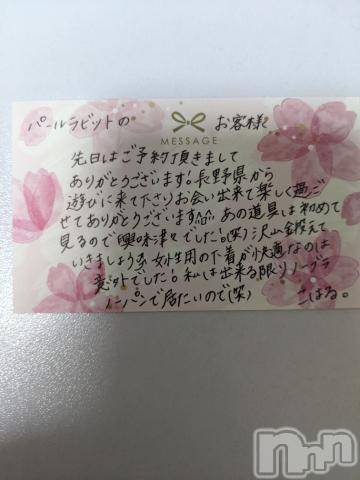 パールラビットの お客様
MESSAGE
先日はご予約頂きまして
ありがとうございます!長野県から
遊びに来て下さりお会い出来て楽しく過ご
せてありがとうございます あの道具は初めて
見るので興味津々でした!(笑)沢山鍛えて
いきましょう 女性用の下着が快適なのは
意外でした!私は出来る限りノーブラ
ノーパンで居たいので(笑) こはる。
nnn